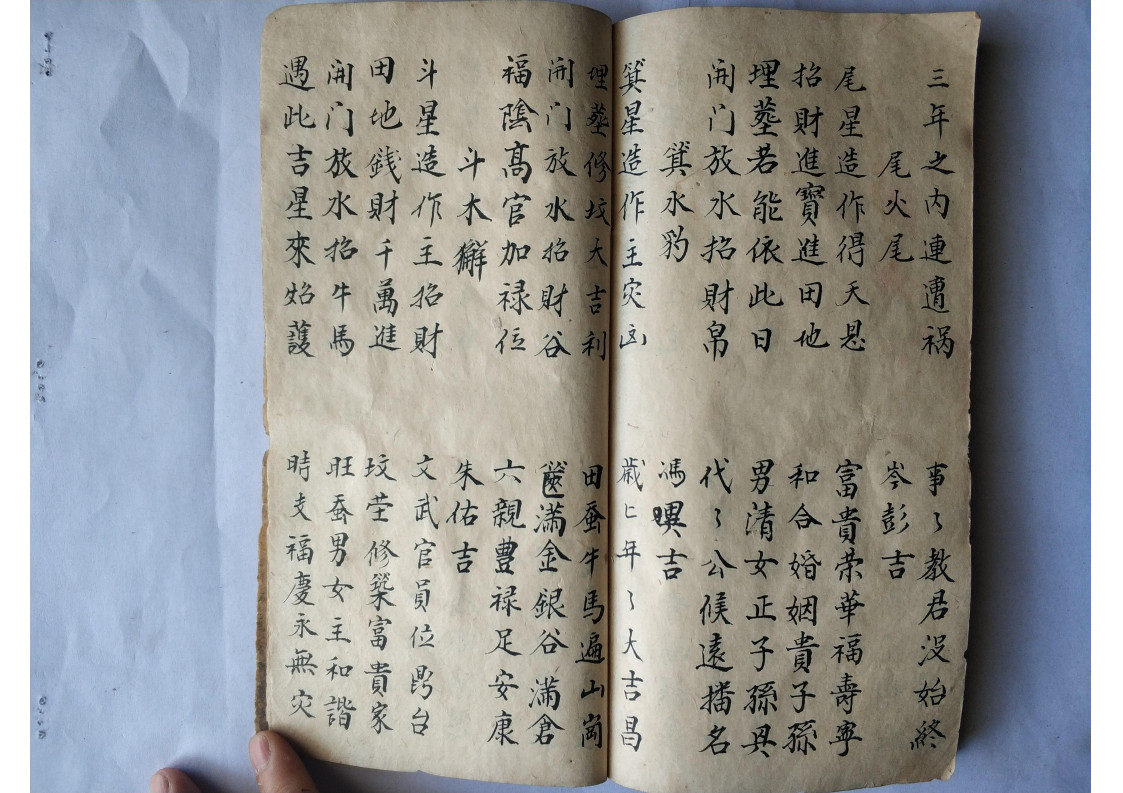 三年之内連遭祸 事々教君没始終
尾火尾 岑彭吉
尾星造作得天恩 富貴荣華福壽寧
招財進寳進田地 和合婚姻貴子孫
埋塟若能依此日 男清女正子孫具
開门放水招財帛 代々公候遠播名
箕水豹 馮異吉
箕星造作主灾凶 歳匕年々大吉昌
埋塟修坟大吉利 田蚕牛馬遍山崗
開门放水招財谷 篋满金銀谷满倉
福隂高官加禄位 六親豊禄足安康
斗木獬 朱佑吉
斗星造作主招財 文武官員位鼎台
田地錢財千萬進 坟茔修築富貴家
開门放水招牛馬 旺蚕男女主和諧
遇此吉星來始護 時支福慶永無灾